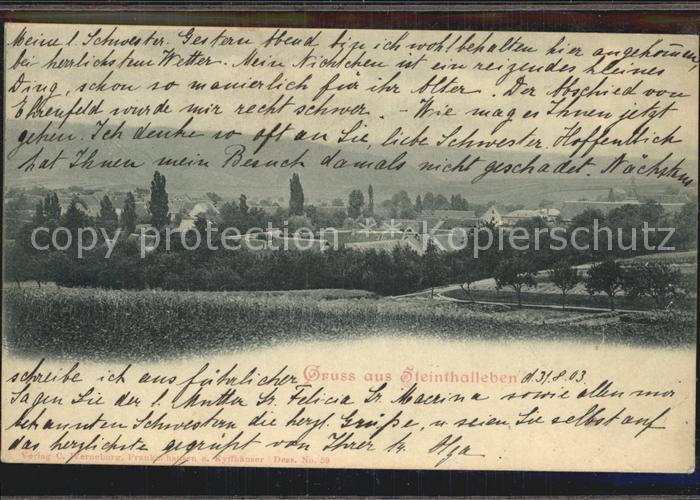 Meine l. Schwester. Gestern Abend bin ich wohlbehalten hier angekommen
bei herrlichstem Wetter. Mein Nichtchen ist ein reizendes kleines
Ding, schon so manierlich für ihr Alter. Der Abschied von
Ehrenfeld wurde mir recht schwer. – Wie mag es Ihnen jetzt
gehen. Ich denke so oft an Sie, liebe Schwester. Hoffentlich
hat Ihnen mein Besuch damals nicht geschadet. Nächstens
copy by Kopierschutz
schreibe ich ausführlicher
Gruss aus Steinthalleben d. 31.8.03.
Sagen Sie der l. Mutter Sr. Felicia Sr. Macrina sowie allen mir
bekannten Schwestern die herzl. Grüße, u seien Sie selbst auf
das herzlichste gegrüßt von Ihrer Sr. Olga
Verlag C. Werneburg, Frankenhausen a. Kyffhäuser Dess. No. 59